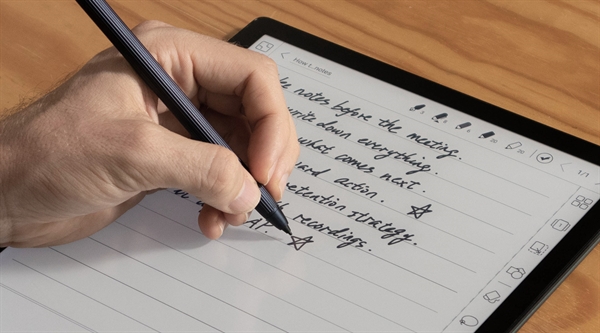 How t.. notes
1/1
notes before the meeting.
write down everything.
what comes next.
action.
retention strategy.
recordings.